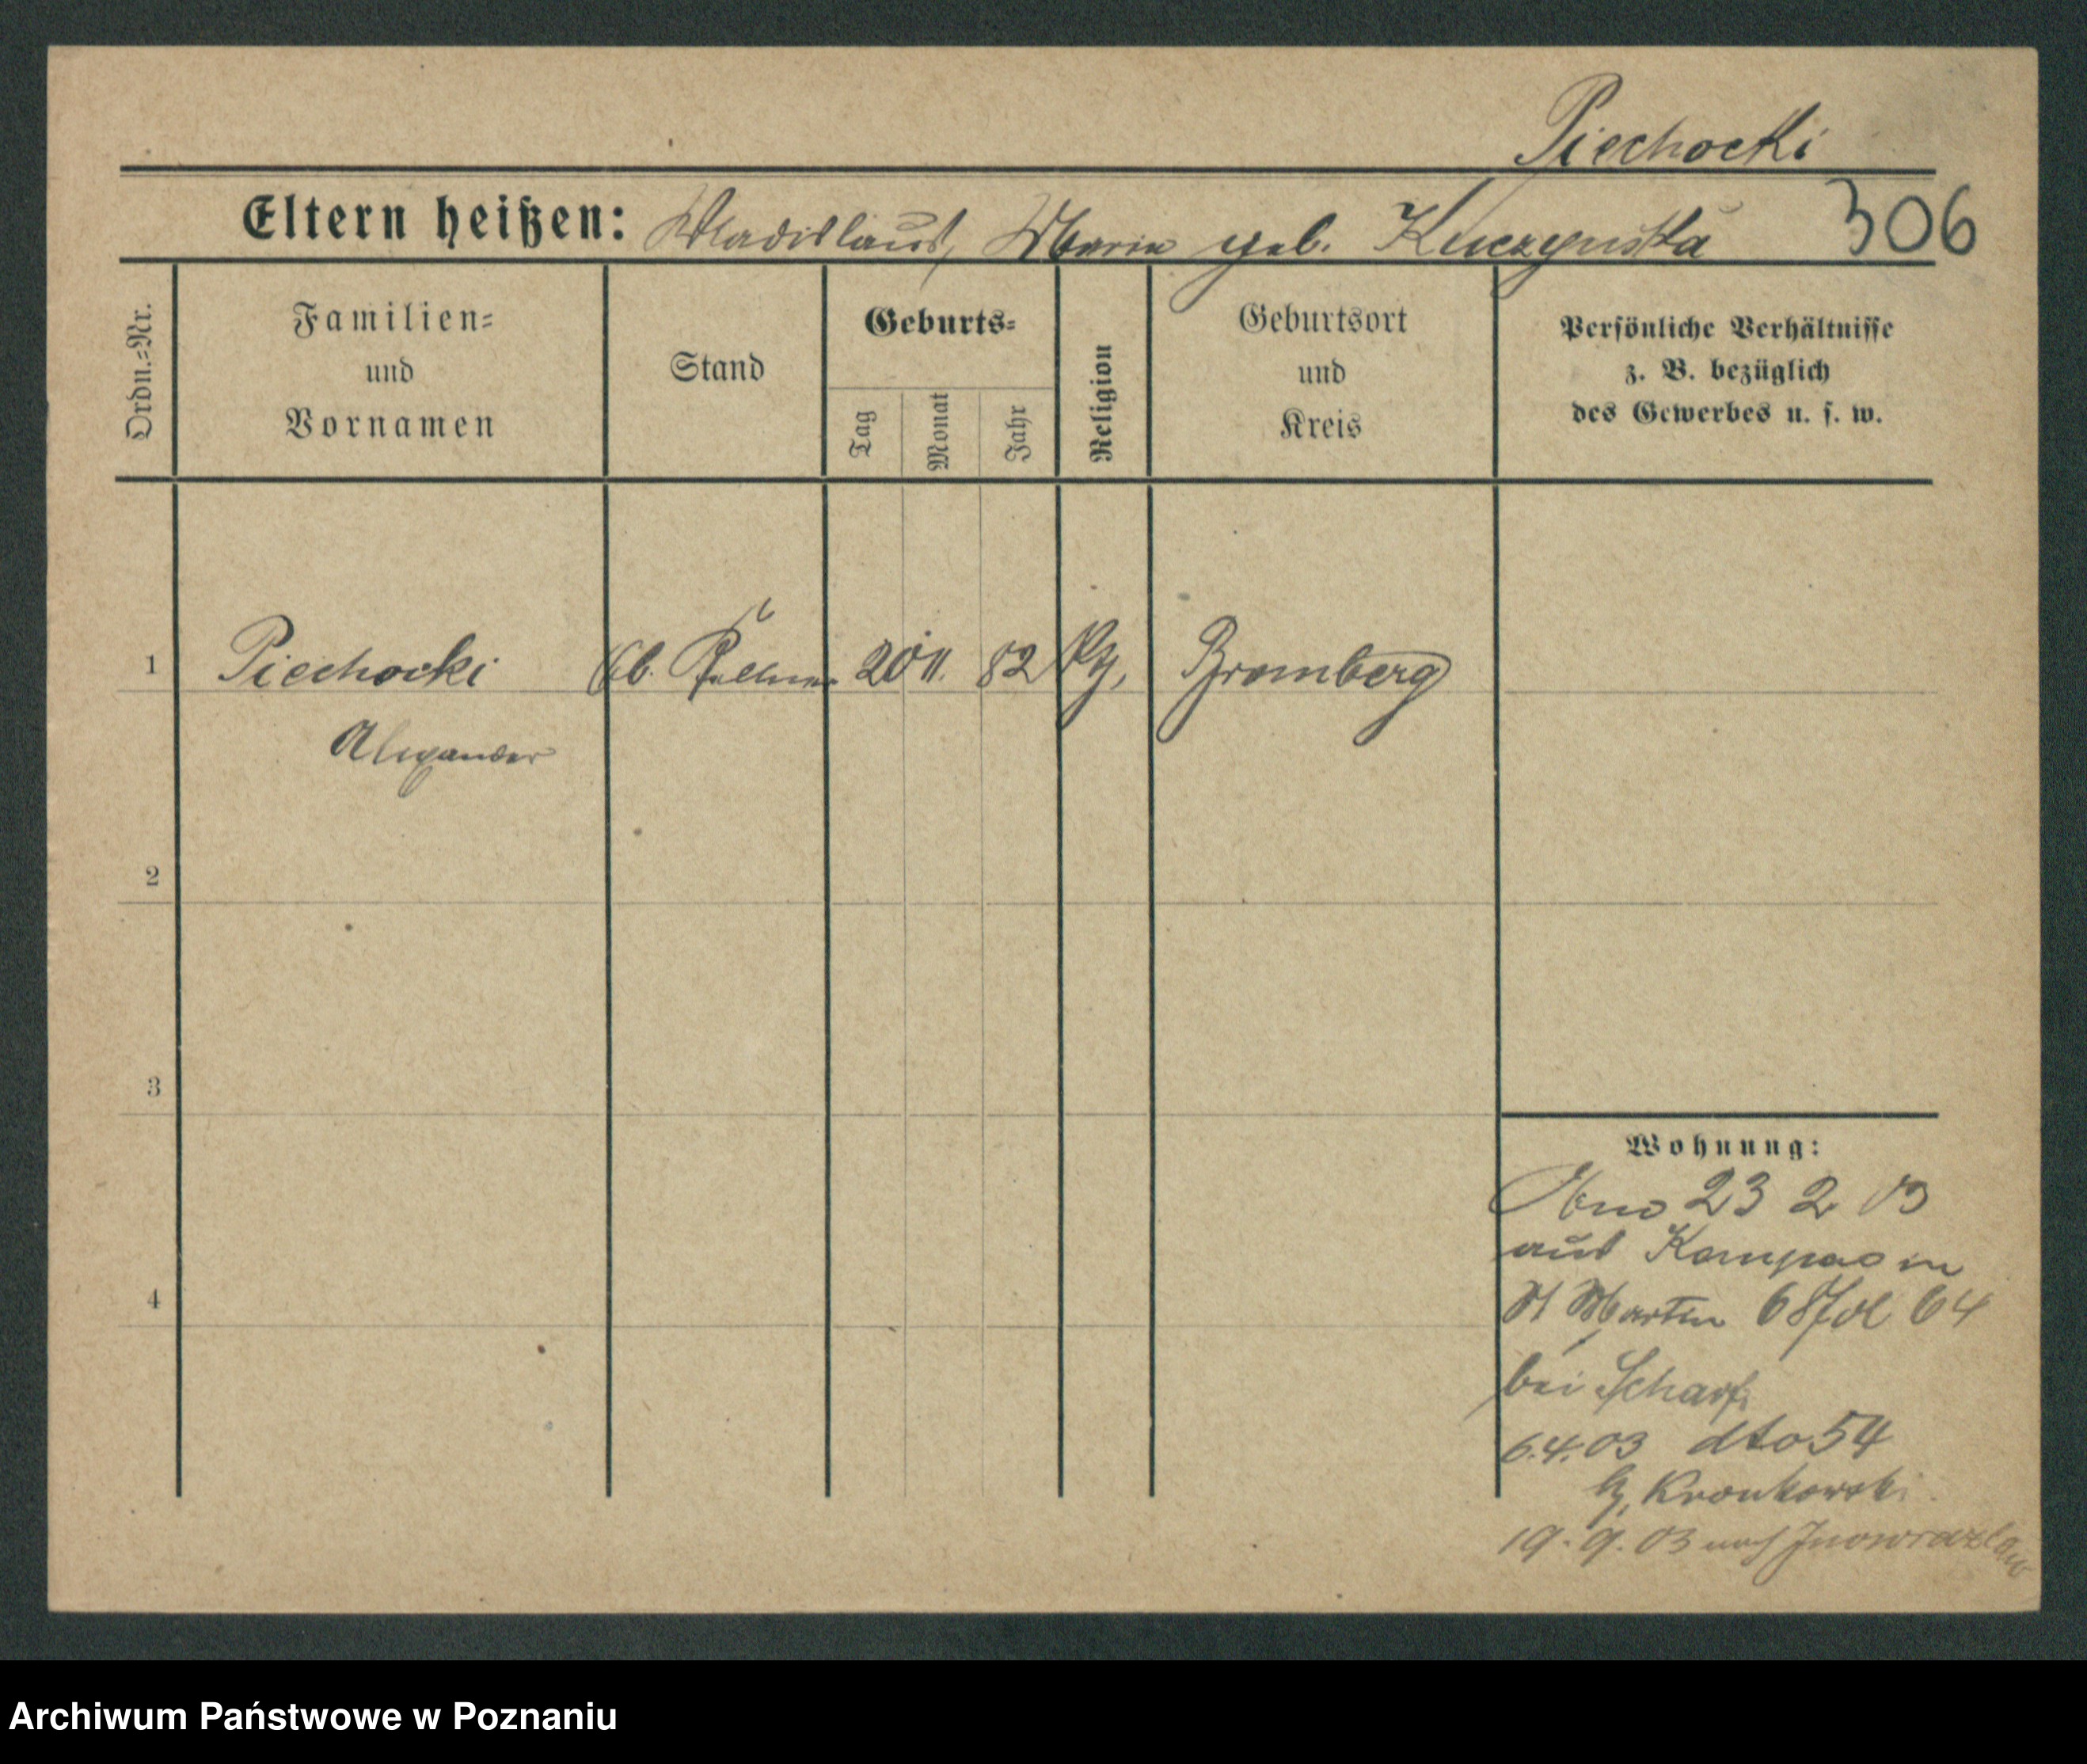 Piechocki
Eltern heißen: Wladislaus, Maria geb. Kuczynska 306
Ordn.=Nr.
Familien=
und
Vornamen
Stand
Geburts=
Tag
Monat
Jahr
Religion
Geburtsort
und
Kreis
Persönliche Verhältnisse
z. B. bezüglich
des Gewerbes u. s. w.
1 Piechocki 20 11. 82 Bromberg
Alexander
2
3
4
Wohnung:
23 2 03
aus
St Martin 68 64
bei Scharf
6.4.03 dto 54
Kronkowski
19.9.03 nach Inowrazlaw
Archiwum Państwowe w Poznaniu